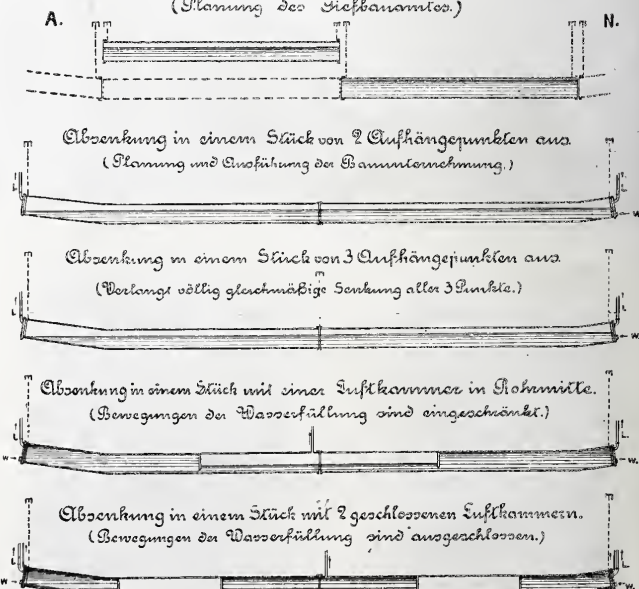 (Planung des Tiefbauamtes.)
A. N.
Absenkung in einem Stück von 2 Aufhängepunkten aus.
(Planung und Ausführung der Bauunternehmung.)
L. L.
W.
Absenkung in einem Stück von 3 Aufhängepunkten aus.
(Verlangt völlig gleichmäßige Senkung aller 3 Punkte.)
L. L.
W.
Absenkung in einem Stück mit einer Luftkammer in Rohrmitte.
(Bewegungen der Wasserfüllung sind eingeschränkt.)
L. L.
W. W.
Absenkung in einem Stück mit 2 geschlossenen Luftkammern.
(Bewegungen der Wasserfüllung sind ausgeschlossen.)
L. L.
W. W.